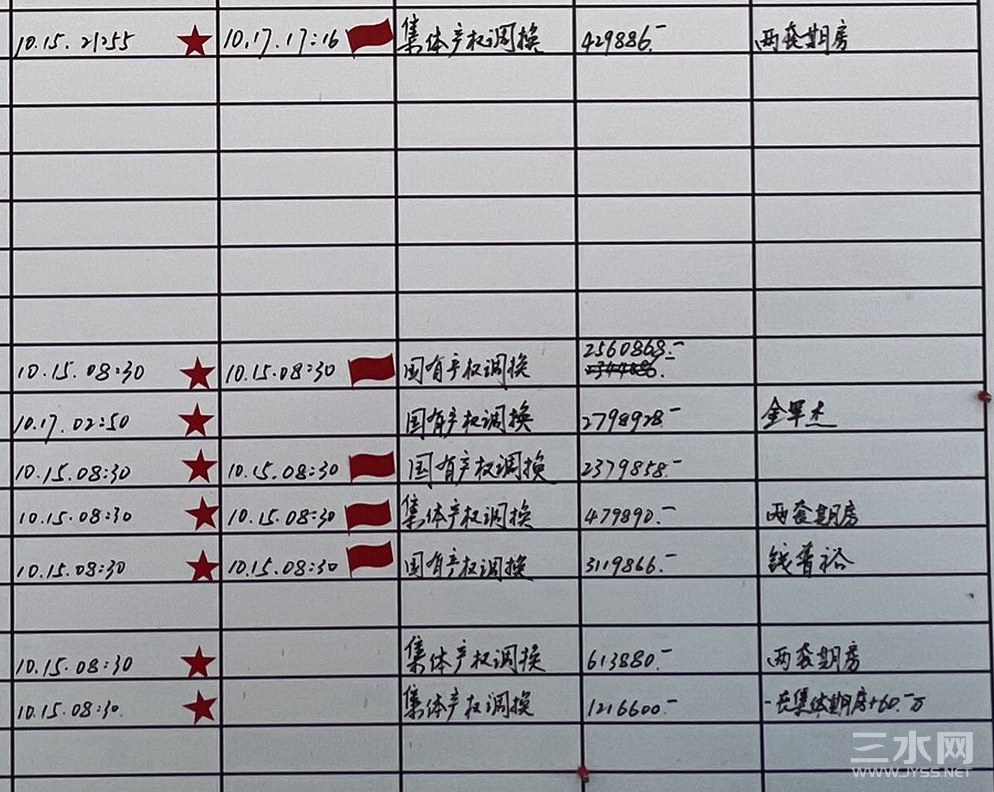 10.15. 21:55 10.17. 17:16 集体产权调换 429886.- 两套期房
2560868.-
10.15. 08:30 10.15. 08:30 国有产权调换
10.17. 02:50 国有产权调换 2798928.-
10.15. 08:30 10.15. 08:30 国有产权调换 2379858.-
10.15. 08:30 10.15. 08:30 集体产权调换 479890.- 两套期房
10.15. 08:30 10.15. 08:30 国有产权调换 3119866.-
10.15. 08:30 集体产权调换 613880.- 两套期房
10.15. 08:30. 集体产权调换 1216600.- 集体期房+60.-万
三水网
WWW.JYSS.NET